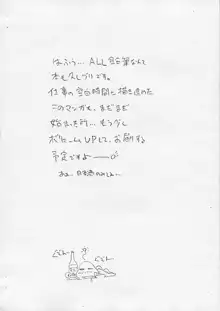 はふぅ… ALL鉛筆なんて
本も久しぶりです。
仕事の合間時間に描き進めた
このマンガも、まだまだ
始まった所… もう少し
ボリュームUPして、お届けする
予定ですよ――
あぁ、日本酒のみてぇ…
ぐらん
ぐらん